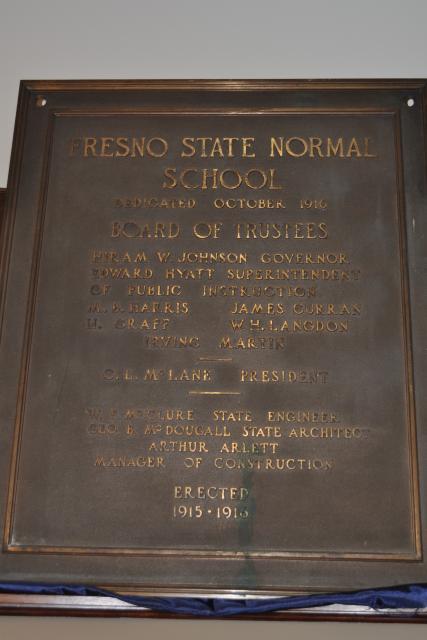 FRESNO STATE NORMAL
SCHOOL
DEDICATED OCTOBER 1916
BOARD OF TRUSTEES
HIRAM W. JOHNSON GOVERNOR
EDWARD HYATT SUPERINTENDENT
OF PUBLIC INSTRUCTION
M. B. HARRIS JAMES CURRAN
H. GRAFF W. H. LANGDON
IRVING MARTIN
C. L. McLANE PRESIDENT
W. F. McCLURE STATE ENGINEER
GEO. B. McDOUGALL STATE ARCHITECT
ARTHUR ARLETT
MANAGER OF CONSTRUCTION
ERECTED
1915 · 1916